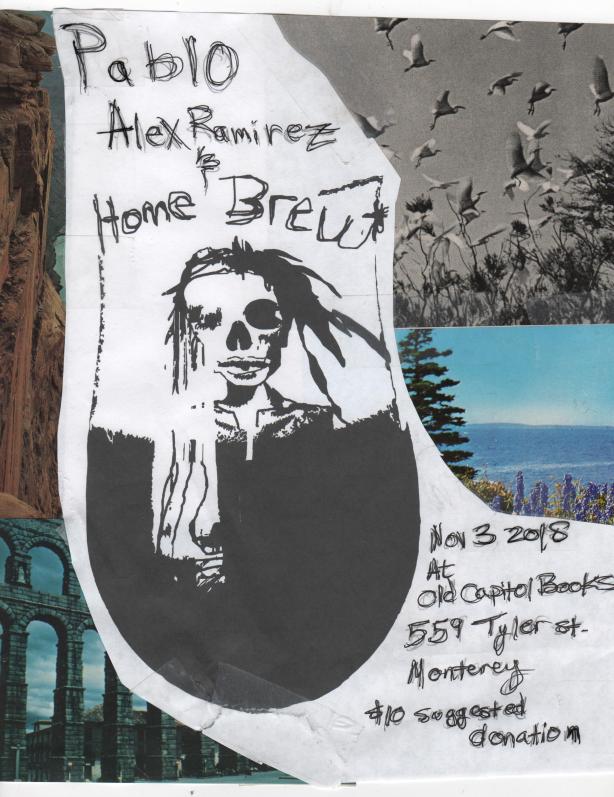 Pablo
Alex Ramirez
&
Home Brew
Nov 3 2018
At
Old Capitol Books
559 Tyler st.
Monterey
$10 suggested
donation